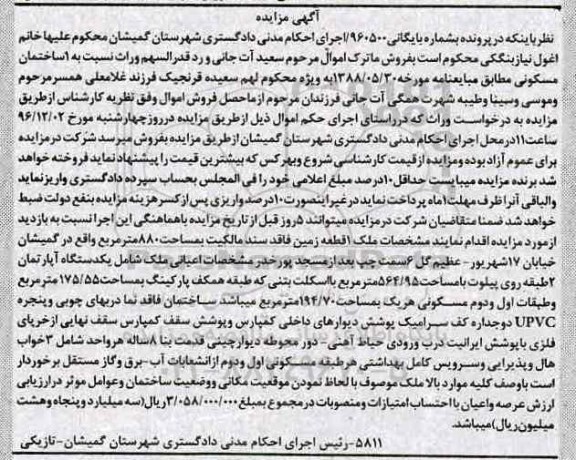 آگهی مزایده
نظر باینکه در پرونده بشماره بایگانی ۹۶۰۵۰۰/اجرای احکام مدنی دادگستری شهرستان گمیشان محکوم علیها خانم
اغول نیاز بنگکی محکوم است بفروش ماترک اموال مرحوم سعید آت جانی و رد قدرالسهم وراث نسبت به ۱ساختمان
مسکونی مطابق مبایعنامه مورخه ۱۳۸۸/۰۵/۳۰ به ویژه محکوم لهم سعیده قرنجیک فرزند غلامعلی همسر مرحوم
وموسی وسینا وطیبه شهرت همگی آت جانی فرزندان مرحوم ازماحصل فروش اموال وفق نظریه کارشناس ازطریق
مزایده به درخواست وراث که درراستای اجرای حکم اموال ذیل ازطریق مزایده درروزچهارشنبه مورخ ۹۶/۱۲/۰۲
ساعت۱۱درمحل اجرای احکام مدنی دادگستری شهرستان گمیشان ازطریق مزایده بفروش میرسد شرکت درمزایده
برای عموم آزاد بوده ومزایده ازقیمت کارشناسی شروع وبهرکس که بیشترین قیمت را پیشنهاد نماید فروخته خواهد
شد برنده مزایده میبایست حداقل۱۰درصد مبلغ اعلامی خود را فی المجلس بحساب سپرده دادگستری واریز نماید
والباقی آنرا ظرف مهلت۱ماه پرداخت نماید درغیراینصورت۱۰درصد واریزی پس ازکسرهزینه مزایده بنفع دولت ضبط
خواهد شد ضمنا متقاضیان شرکت درمزایده میتوانند ۵روز قبل از تاریخ مزایده باهماهنگی این اجرا نسبت به بازدید
ازمورد مزایده اقدام نمایند مشخصات ملک ۱قطعه زمین فاقد سند مالکیت بمساحت۸۸۰مترمربع واقع در گمیشان
خیابان ۱۷شهریور- عظیم گل ۶سمت چپ بعد ازمسجد پورخدر مشخصات اعیانی ملک شامل یکدستگاه آپارتمان
۲طبقه روی پیلوت بامساحت۵۶۴/۹۵مترمربع بااسکلت بتنی که طبقه همکف پارکینگ بمساحت۱۷۵/۵۵مترمربع
وطبقات اول ودوم مسکونی هریک بمساحت۱۹۴/۷۰مترمربع میباشد ساختمان فاقد نما دربهای چوبی وپنجره
UPVC دوجداره کف سرامیک پوشش دیوارهای داخلی کمپارس وپوشش سقف کمپارس سقف نهایی ازخرپای
فلزی باپوشش ایرانیت درب ورودی حیاط آهنی- دور محوطه دیوارچینی قدمت بنا ۸ساله هرواحد شامل ۳خواب
هال وپذیرایی وسرویس کامل بهداشتی هرطبقه مسکونی اول ودوم ازانشعابات آب-برق وگاز مستقل برخوردار
است باوصف کلیه موارد بالا ملک موصوف با لحاظ نمودن موقعیت مکانی ووضعیت ساختمان وعوامل موثر درارزیابی
ارزش عرصه واعیان با احتساب امتیازات ومنصوبات درمجموع بمبلغ ۳/۰۵۸/۰۰۰/۰۰۰ریال(سه میلیارد وپنجاه وهشت
میلیون ریال)میباشد.
۵۸۱۱-رئیس اجرای احکام مدنی دادگستری شهرستان گمیشان-تازیکی